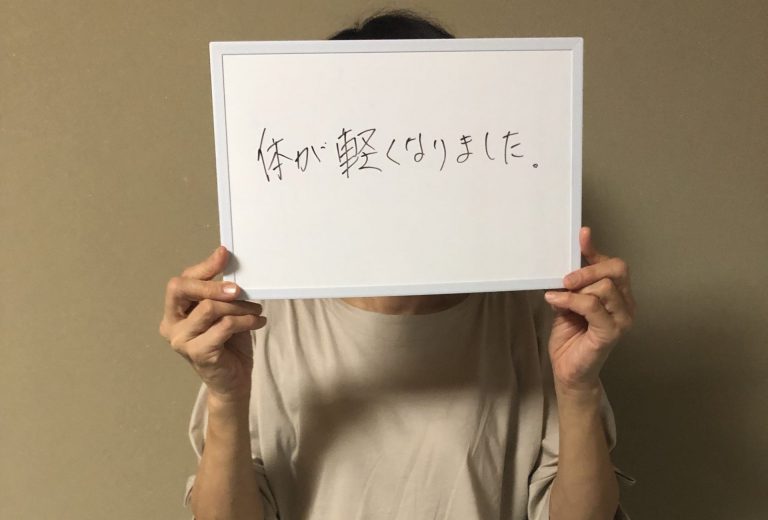 体が軽くなりました。